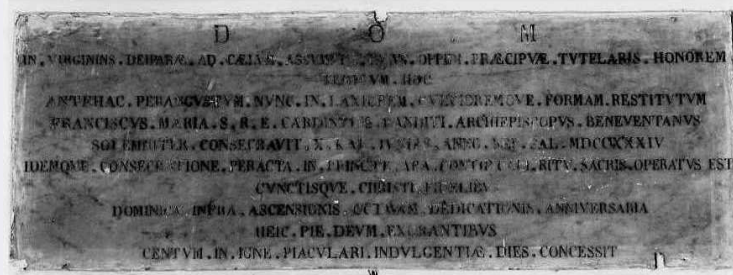 D O M
IN . VIRGINIS . DEIPARÆ . AD . CÆLVM . HVIVS . OPPIDI . PRÆCIPVÆ . TVTELARIS . HONOREM
TEMPLVM . HOC
ANTEHAC . PERANGVSTVM . NVNC . IN . LAXIOREM . CVLTIOREMQVE . FORMAM . RESTITVTVM
FRANCISCVS . MARIA . S . R . E . CARDINALIS . BANDITI . ARCHIEPISCOPVS . BENEVENTANVS
SOLEMNITER . CONSECRAVIT . X . KAL . ANNO . SAL .
IDEMQVE . CONSECRATIONE . PERACTA . IN . PRINCIPE . ARA . RITV . SACRIS . OPERATVS EST
CVNCTISQVE . CHRISTI . FIDELIBVS
DOMINICA . INFRA . ASCENSIONIS . OCTAVAM . DEDICATIONIS . ANNIVERSARIA
HEIC . PIE . DEVM . EXORANTIBVS
CENTVM . IN . IGNE . PIACVLARI . INDVLGENTIÆ . DIES . CONCESSIT